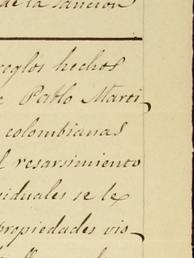 de la sancion
reglos hechos
e Pablo Marti-
colombianas
l resarsimiento
iduales se le
propiedades vio-